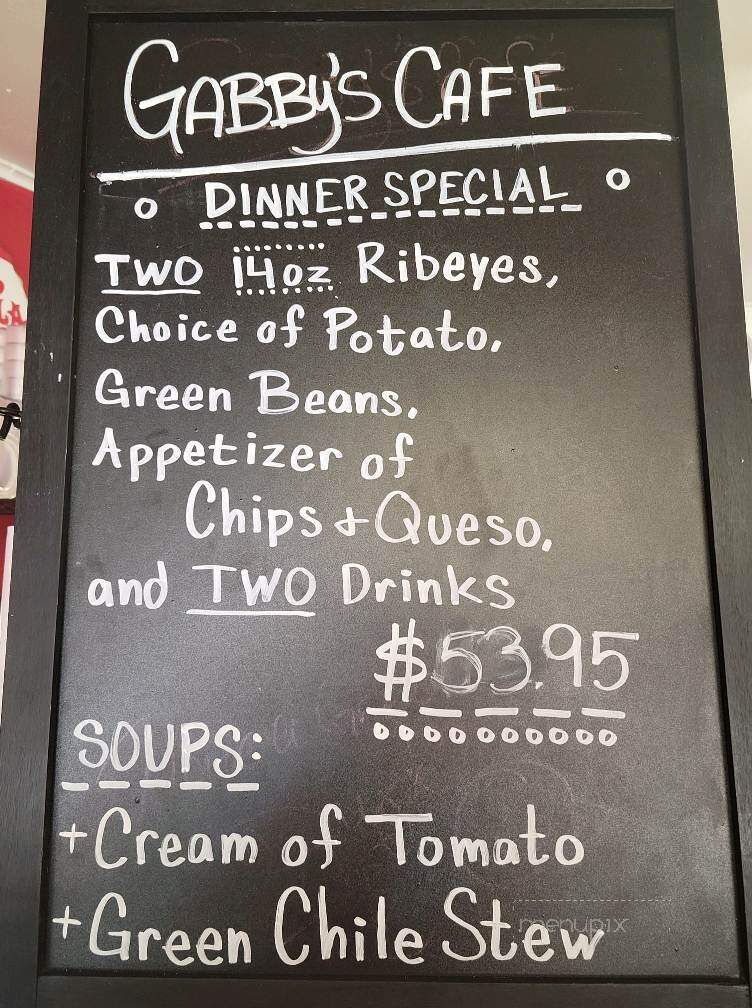 GABBY'S CAFE
DINNER SPECIAL
TWO 14oz Ribeyes,
Choice of Potato,
Green Beans,
Appetizer of
Chips + Queso,
and TWO Drinks
$53.95
SOUPS:
+Cream of Tomato
+Green Chile Stew
menupix